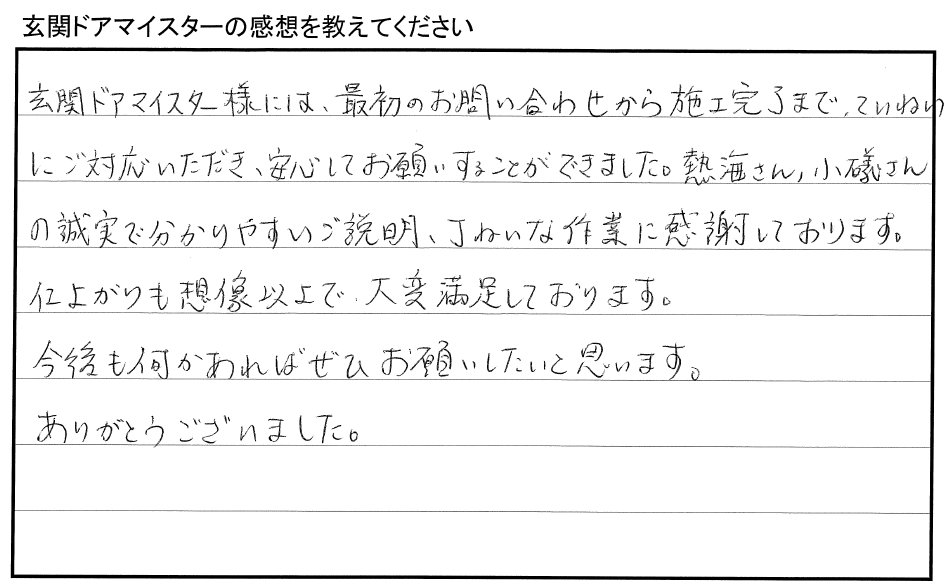 玄関ドアマイスターの感想を教えてください
玄関ドアマイスター様には、最初のお問い合わせから施工完了まで、ていねい
にご対応いただき、安心してお願いすることができました。熱海さん、小礒さん
の誠実で分かりやすいご説明、丁ねいな作業に感謝しております。
仕上がりも想像以上で、大変満足しております。
今後も何かあればぜひお願いしたいと思います。
ありがとうございました。